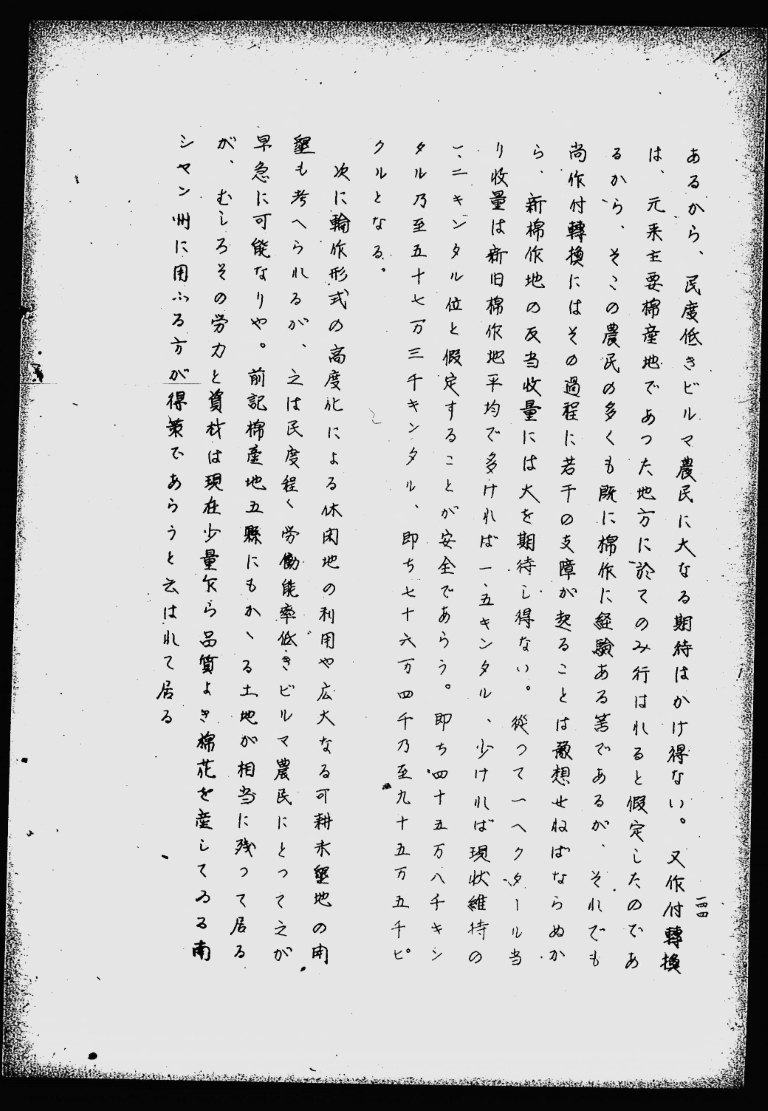 あるから、民度低きビルマ農民に大なる期待はかけ得ない。又作付轉換
は、元来主要棉産地であつた地方に於てのみ行はれると假定したのであ
るから、そこの農民の多くも既に棉作に経験ある筈であるが、それでも
尚作付轉換にはその過程に若干の支障が起ることは豫想せねばならぬか
ら、新棉作地の反当收量には大を期待し得ない。從つて一ヘクタール当
り收量は新旧棉作地平均で多ければ一、五キンタル、少ければ現狀維持の
一、二キンタル位と假定することが安全であらう。即ち四十五万八千キン
タル乃至五十七万三千キンタル、即ち七十六万四千乃至九十五万五千ピ
クルとなる。
次に輪作形式の高度化による休閑地の利用や広大なる可耕未墾地の開
墾も考へられるが、之は民度程く労働能率低きビルマ農民にとつて之が
早急に可能なりや。前記棉産地五縣にもかゝる土地が相当に残つて居る
が、むしろその労力と資材は現在少量乍ら品質よき棉花を産してゐる南
シヤン州に用ふる方が得策であらうと云はれて居る
二四四